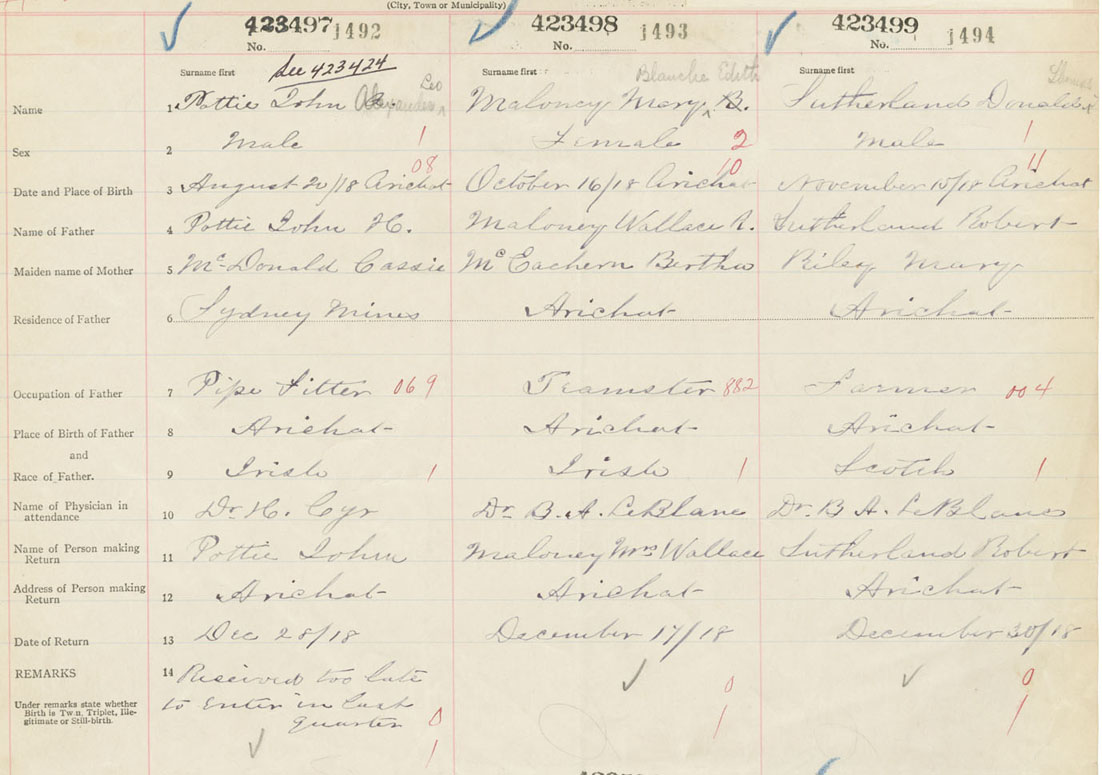 (City, Town or Municipality)
423497 1492
423498 1493
423499 1494
No.
No.
No.
Surname first See 423424
Surname first Blanche Edith
Surname first
Leo
Name 1 Pottie John Alexander
Maloney Mary B.
Sutherland Donald
Sex 2 Male 1
Female 2
Male 1
08
10
11
Date and Place of Birth 3 August 20/18 Arichat
October 16/18 Arichat
November 15/18 Arichat
Name of Father 4 Pottie John H.
Maloney Wallace A.
Sutherland Robert
Maiden name of Mother 5 McDonald Cassie
McEachern Bertha
Riley Mary
Residence of Father 6 Sydney Mines
Arichat
Arichat
Occupation of Father 7 Pipe Fitter 069
Teamster 882
Farmer 004
Place of Birth of Father 8 Arichat
Arichat
Arichat
and
Race of Father. 9 Irish 1
Irish 1
Scotch 1
Name of Physician in
attendance 10 Dr. H. Cyr
Dr. B. A. LeBlanc
Dr. B A. LeBlanc
Name of Person making
Return 11 Pottie John
Maloney Mrs Wallace
Sutherland Robert
Address of Person making
Return 12 Arichat
Arichat
Arichat
Date of Return 13 Dec 28/18
December 17/18
December 30/18
REMARKS 14 Received too late
to Enter in Last
Quarter 0
1
0
1
0
1
Under remarks state whether
Birth is Twin, Triplet, Ille-
gitimate or Still-birth.